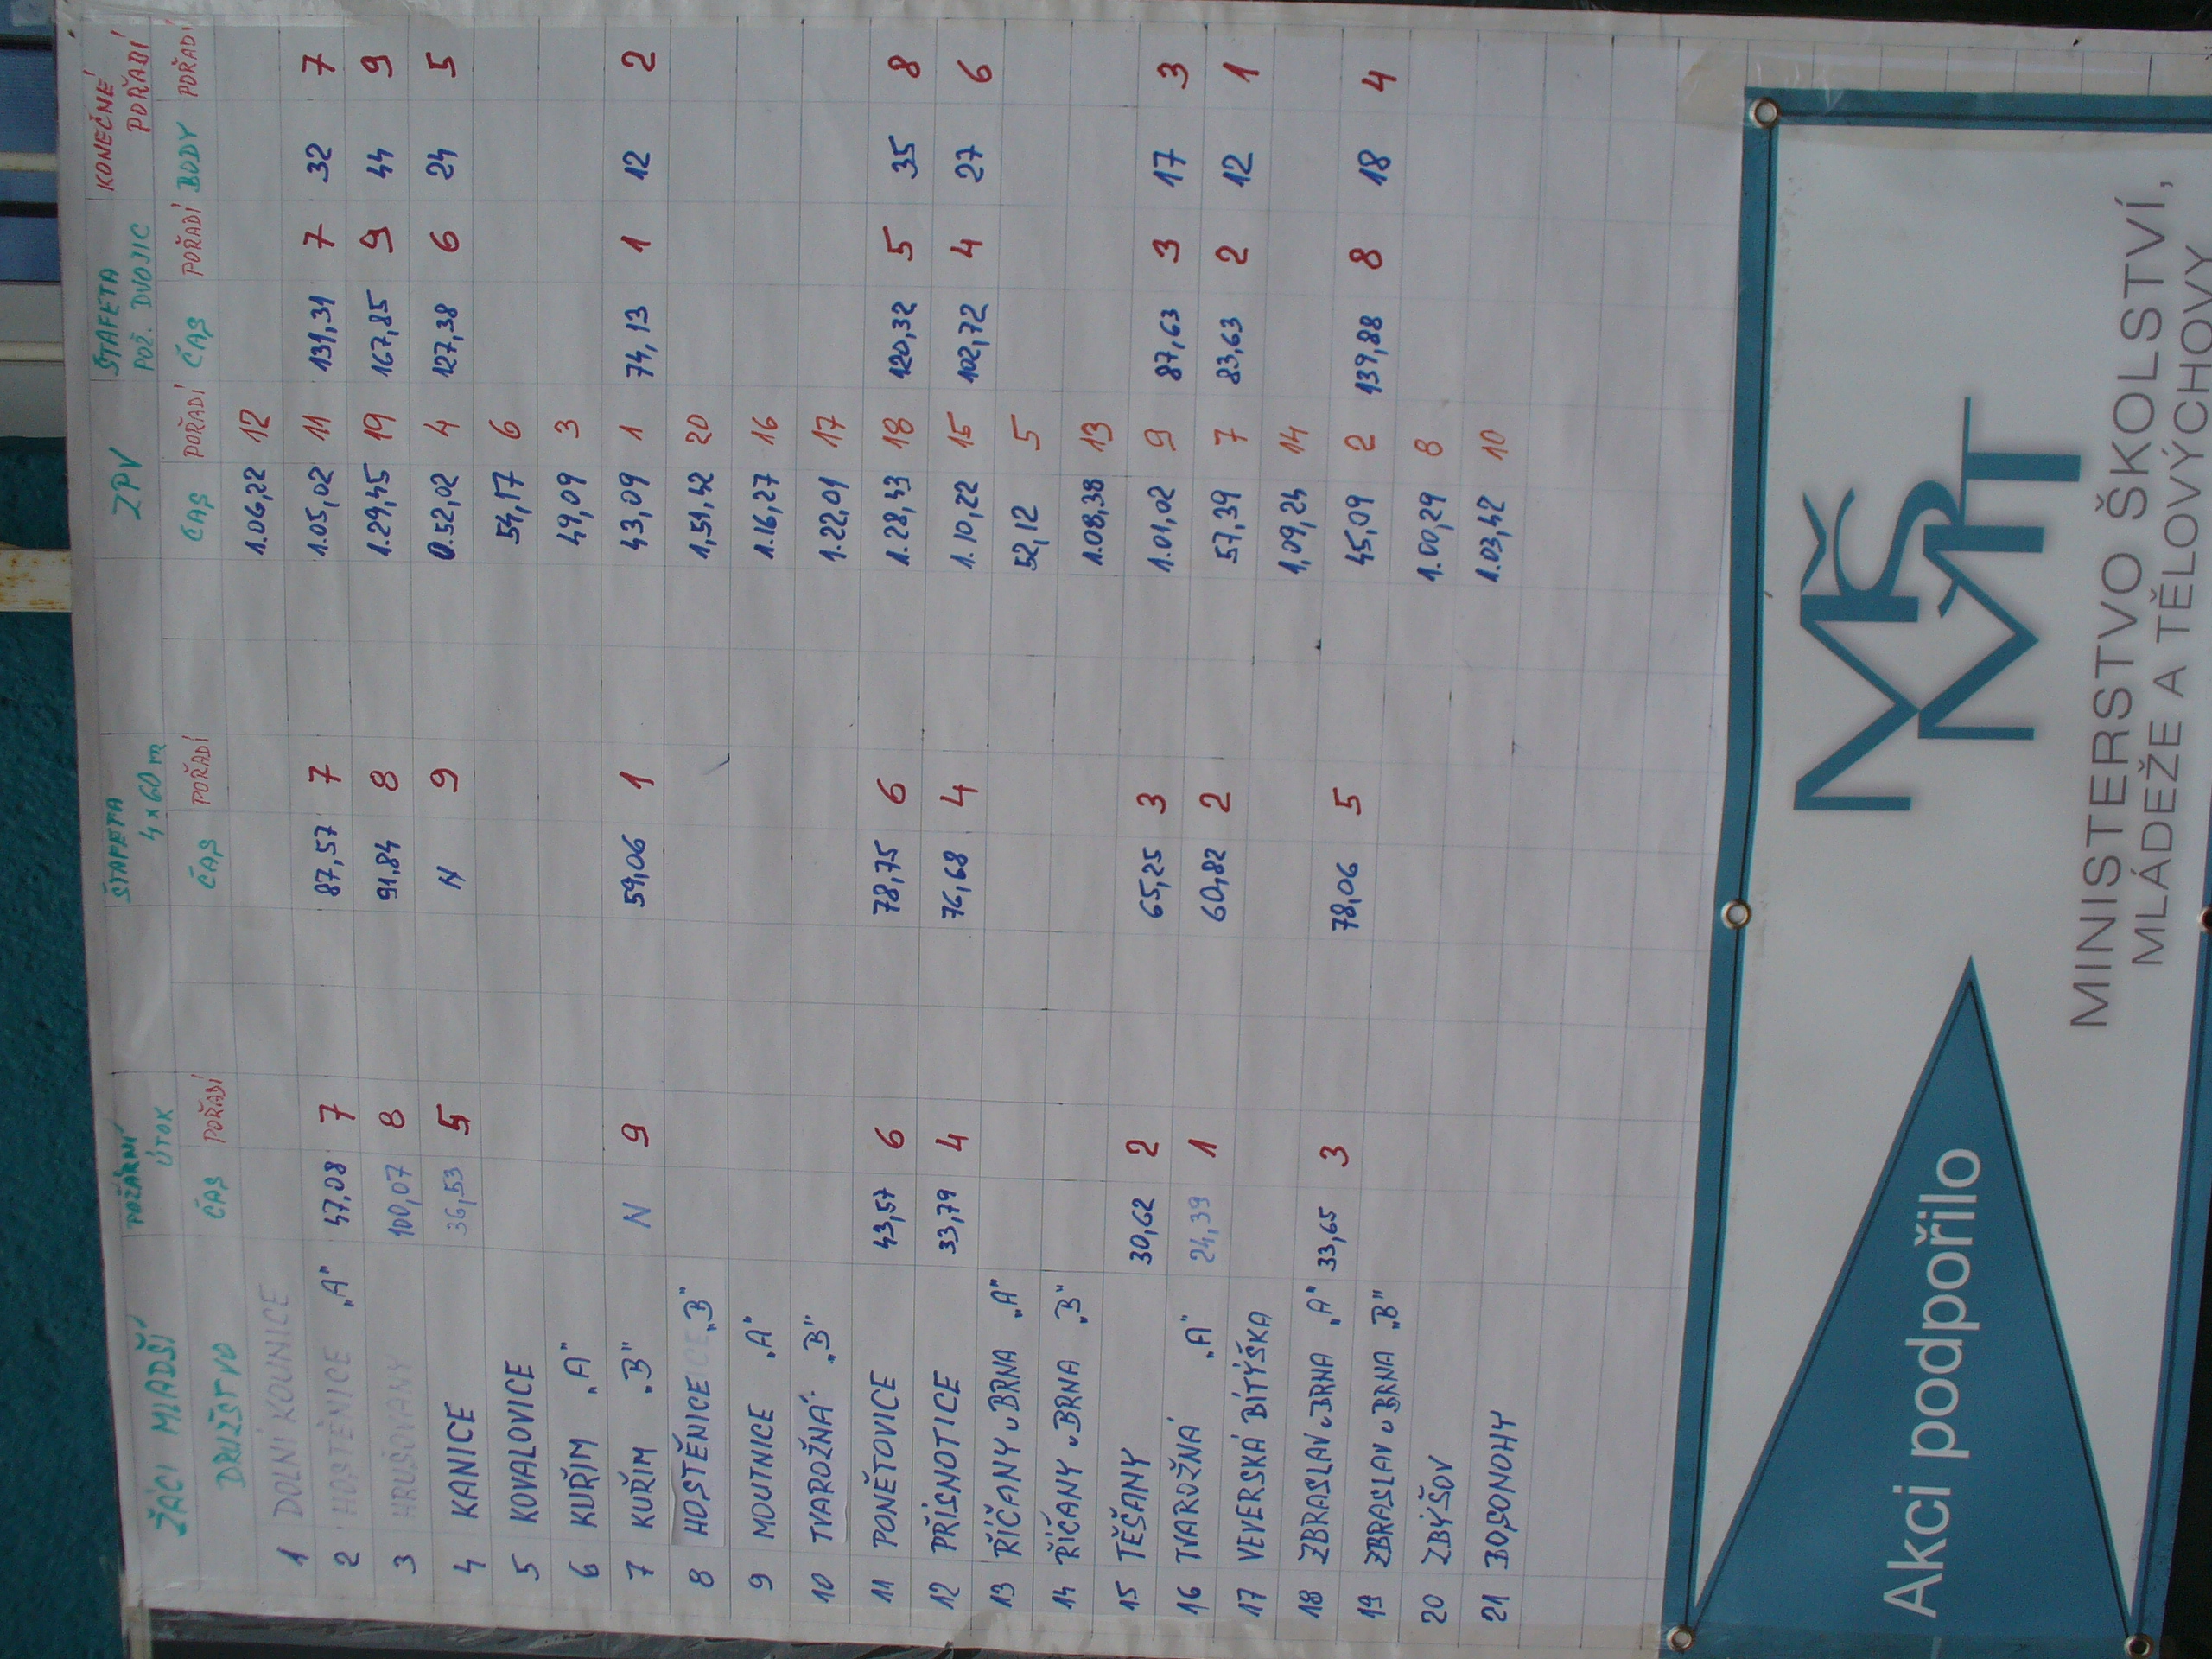 ŽÁCI MLADŠÍ POŽÁRNÍ ÚTOK ŠTAFETA 4x60m ZPV ŠTAFETA POŽ. DVOJIC KONEČNÉ POŘADÍ
DRUŽSTVO ČAS POŘADÍ ČAS POŘADÍ ČAS POŘADÍ ČAS POŘADÍ BODY POŘADÍ
1 DOLNÍ KOUNICE 1.06,22 12
2 HOSTĚNICE „A" 47,08 7 87,57 7 1.05,02 11 131,31 7 32 7
3 HRUŠOVANY 100,07 8 91,84 8 1.29,45 19 167,85 9 44 9
4 KANICE 36,53 5 N 9 0.52,02 4 127,38 6 24 5
5 KOVALOVICE 54,17 6
6 KUŘIM „A" 49,09 3
7 KUŘIM „B" N 9 59,06 1 43,09 1 74,13 1 12 2
8 HOSTĚNICE „B" 1,51,42 20
9 MOUTNICE „A" 1.16,27 16
10 TVAROŽNÁ „B" 1.22,01 17
11 PONĚTOVICE 43,57 6 78,75 6 1.28,43 18 120,32 5 35 8
12 PŘÍSNOTICE 33,79 4 76,68 4 1.10,22 15 102,72 4 27 6
13 ŘÍČANY u BRNA „A" 52,12 5
14 ŘÍČANY u BRNA „B" 1.08,38 13
15 TĚŠANY 30,62 2 65,25 3 1.01,02 9 87,63 3 17 3
16 TVAROŽNÁ „A" 24,39 1 60,82 2 57,39 7 83,63 2 12 1
17 VEVERSKÁ BÍTÝŠKA 1,09,24 14
18 ZBRASLAV u BRNA „A" 33,65 3 78,06 5 45,09 2 139,88 8 18 4
19 ZBRASLAV u BRNA „B" 1.00,29 8
20 ZBÝŠOV 1.03,42 10
21 BOSONOHY
Akci podpořilo
MŠMT
MINISTERSTVO ŠKOLSTVÍ,
MLÁDEŽE A TĚLOVÝCHOVY